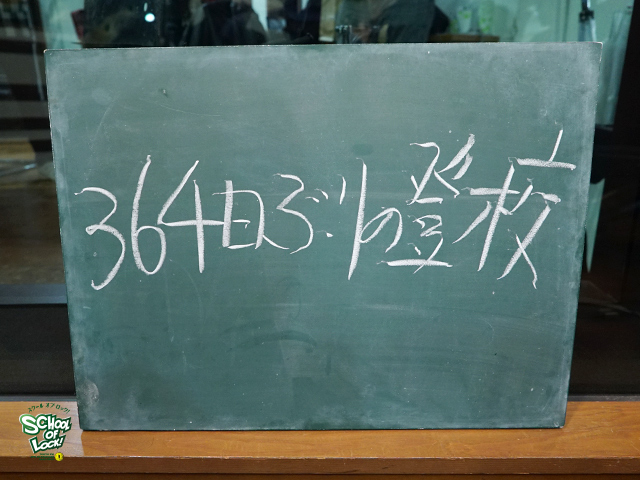 364日ぶりの登校
スクール オブ ロック!
SCHOOL
OF
LOCK!